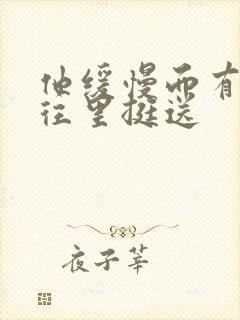 他缓慢而有
往里挺送
夜子莘